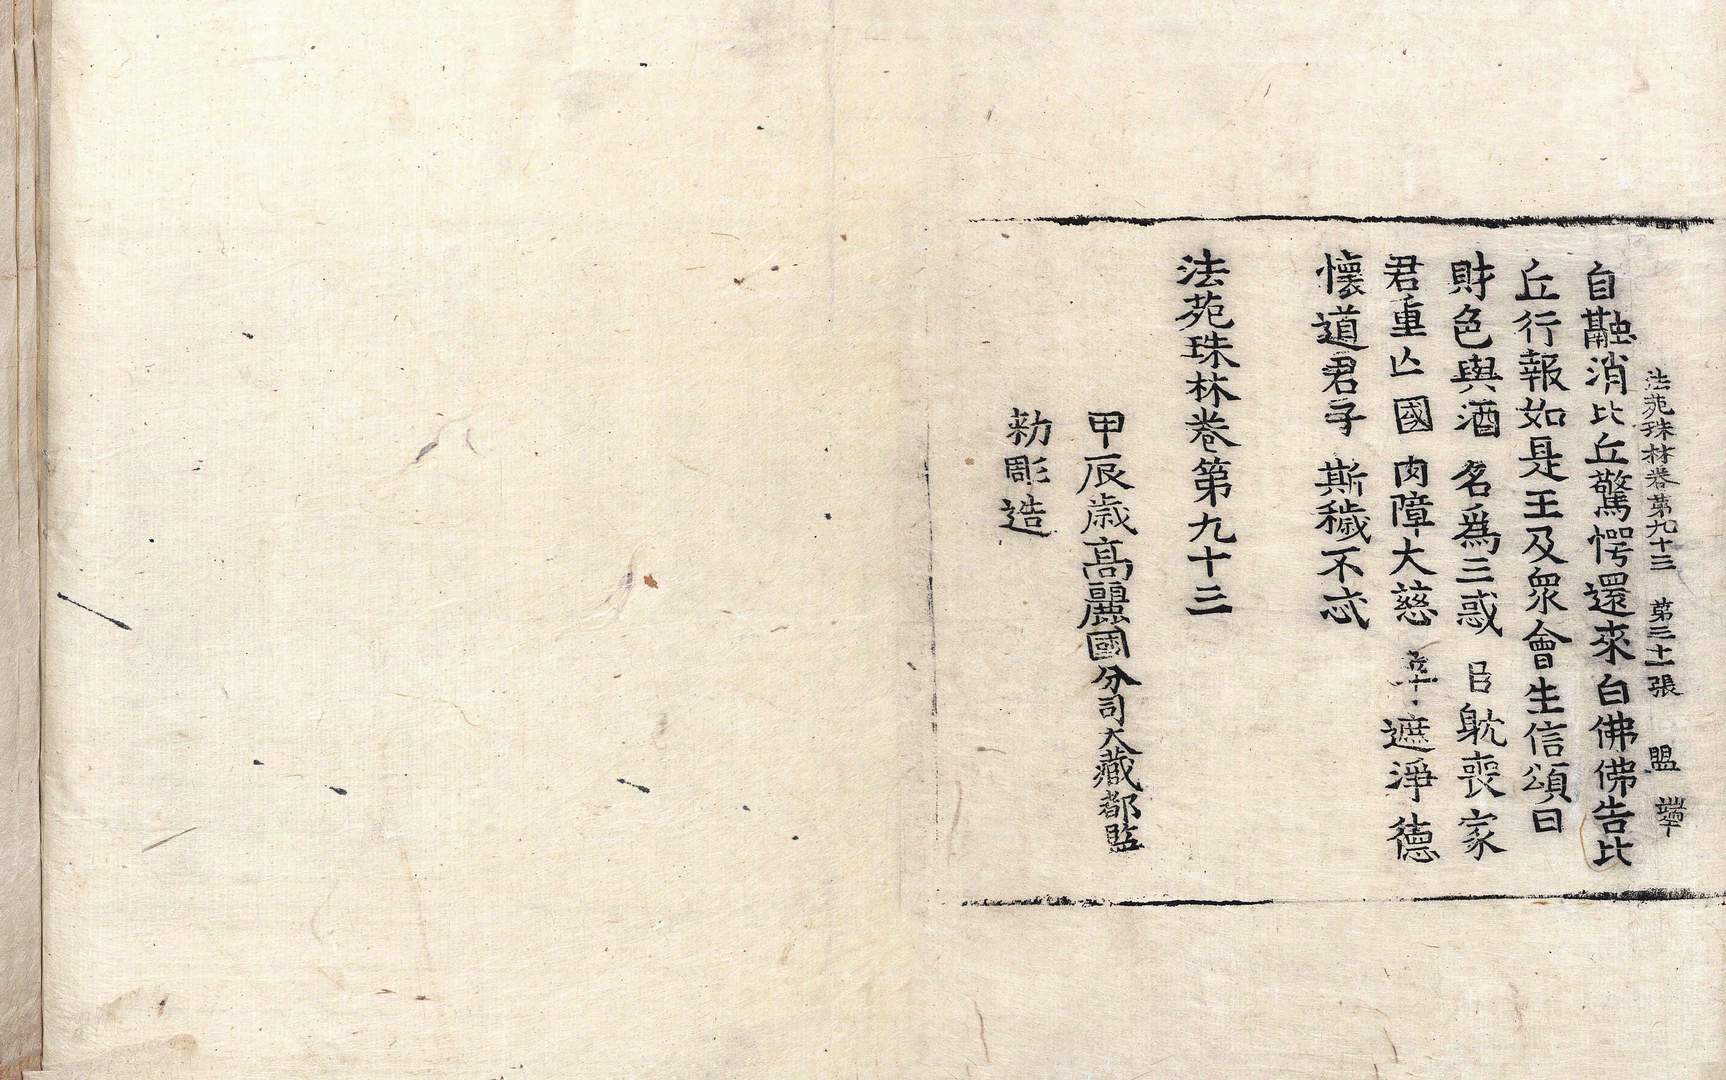 法苑珠林卷第九十三 第三十一張 盟
自融消比丘驚愕還來白佛佛告比
丘行報如是王及衆會生信頌曰
財色與酒 名爲三惑 臣躭喪家
君重亾國 肉障大慈 辛遮淨德
懷道君子 斯穢不忒
法苑珠林卷第九十三
甲辰歳高麗國分司大藏都監
勑彫造